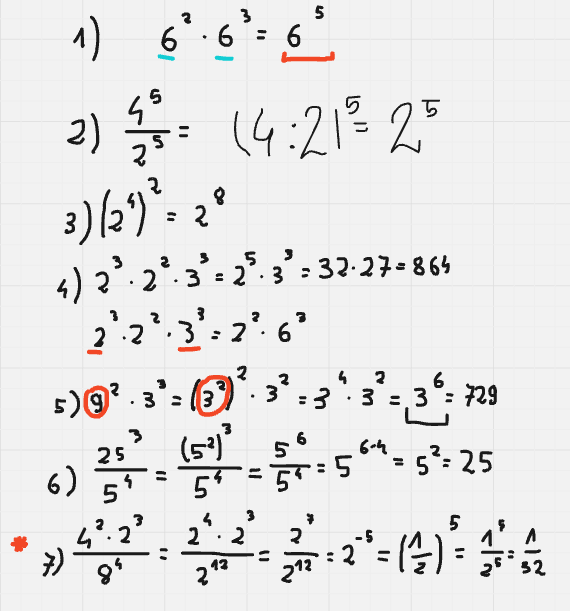 1) 6² · 6³ = 6⁵
2) 4⁵/2⁵ = (4:2)⁵ = 2⁵
3) (2⁴)² = 2⁸
4) 2³ · 2² · 3³ = 2⁵ · 3³ = 32 · 27 = 864
2³ · 2² · 3³ = 2² · 6³
5) 9² · 3³ = (3²)² · 3² = 3⁴ · 3² = 3⁶ = 729
6) 25³/5⁴ = (5²)³/5⁴ = 5⁶/5⁴ = 5⁶⁻⁴ = 5² = 25
* 7) 4² · 2³/8⁴ = 2⁴ · 2³/2¹² = 2⁷/2¹² = 2⁻⁵ = (1/2)⁵ = 1⁵/2⁵ = 1/32